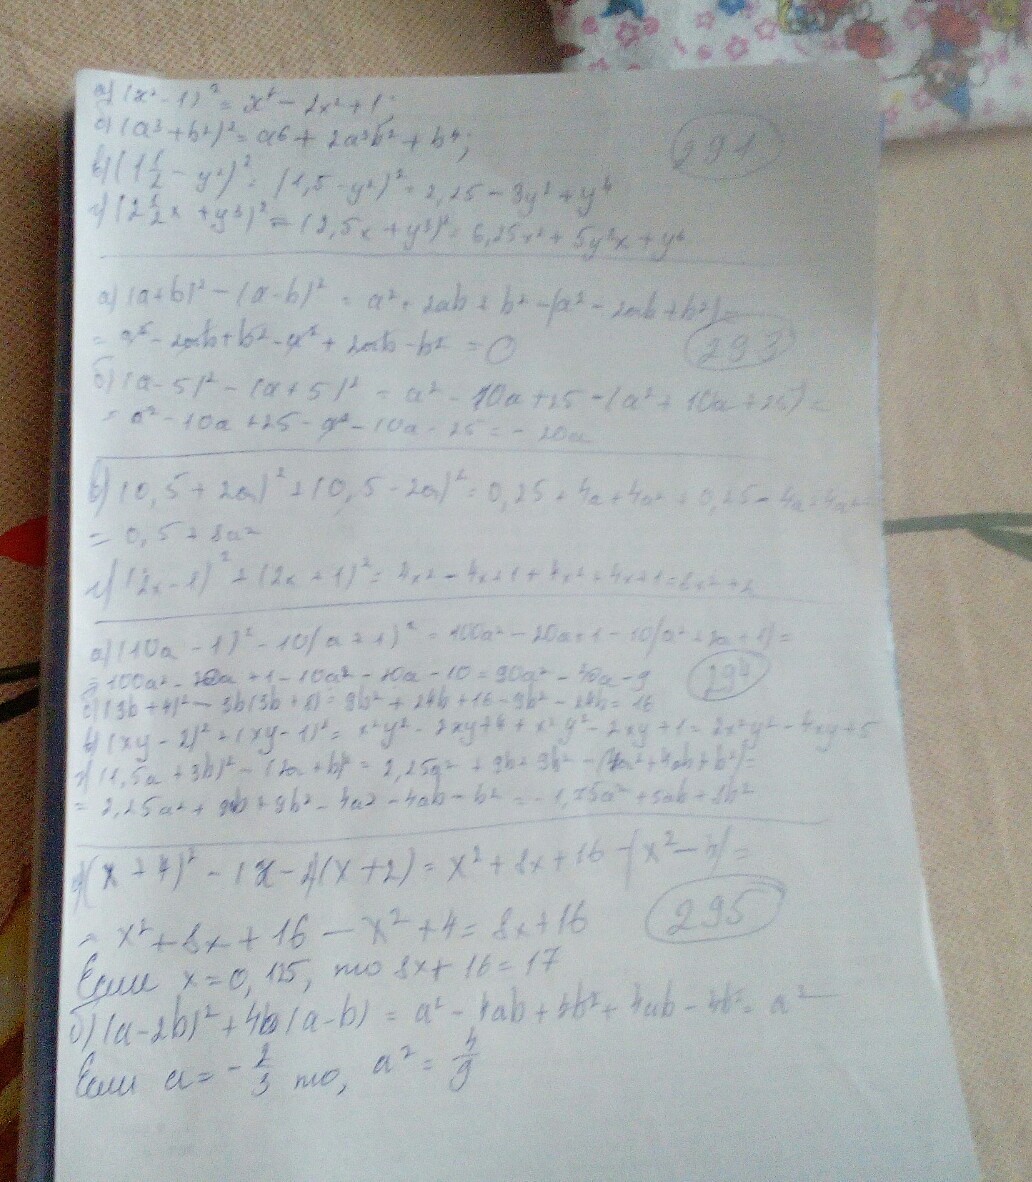 а) (x²-1)² = x⁴ - 2x² + 1;
б) (a³+b²)² = a⁶ + 2a³b² + b⁴;
291
в) (1 1/2 - y²)² = (1,5-y²)² = 2,25 - 3y² + y⁴
г) (2 1/2 x + y³)² = (2,5x + y³)² = 6,25x² + 5y³x + y⁶
а) (a+b)² - (a-b)² = a² + 2ab + b² - (a² - 2ab + b²) =
= a² - 2ab + b² - a² + 2ab - b² = 0
293
б) (a-5)² - (a+5)² = a² - 10a + 25 - (a² + 10a + 25) =
= a² - 10a + 25 - a² - 10a - 25 = - 20a
в) (0,5 + 2a)² + (0,5 - 2a)² = 0,25 + 4a + 4a² + 0,25 - 4a + 4a² =
= 0,5 + 8a²
г) (2x-1)² + (2x+1)² = 4x² - 4x + 1 + 4x² + 4x + 1 = 8x² + 2
а) (10a - 1)² - 10(a + 1)² = 100a² - 20a + 1 - 10(a² + 2a + 1) =
= 100a² - 20a + 1 - 10a² - 20a - 10 = 90a² - 40a - 9
294
б) (3b+4)² - 3b(3b+8) = 9b² + 24b + 16 - 9b² - 24b = 16
в) (xy - 2)² + (xy-1)² = x²y² - 2xy + 4 + x²y² - 2xy + 1 = 2x²y² - 4xy + 5
г) (1,5a + 3b)² - (2a + b)² = 2,25a² + 9b + 9b² - (4a² + 4ab + b²) =
= 2,25a² + 9b + 9b² - 4a² - 4ab - b² = - 1,75a² + 5ab + 8b²
а) (x + 4)² - (x - 2)(x + 2) = x² + 8x + 16 - (x² - 4) =
= x² + 8x + 16 - x² + 4 = 8x + 16
295
Если x = 0,125, то 8x + 16 = 17
б) (a-2b)² + 4b(a-b) = a² - 4ab + 4b² + 4ab - 4b² = a²
Если a = - 2/3 то, a² = 4/9